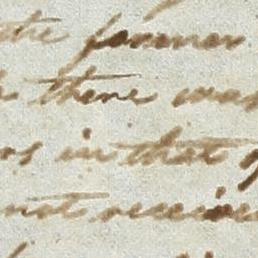 the former
there was
in that
not receive